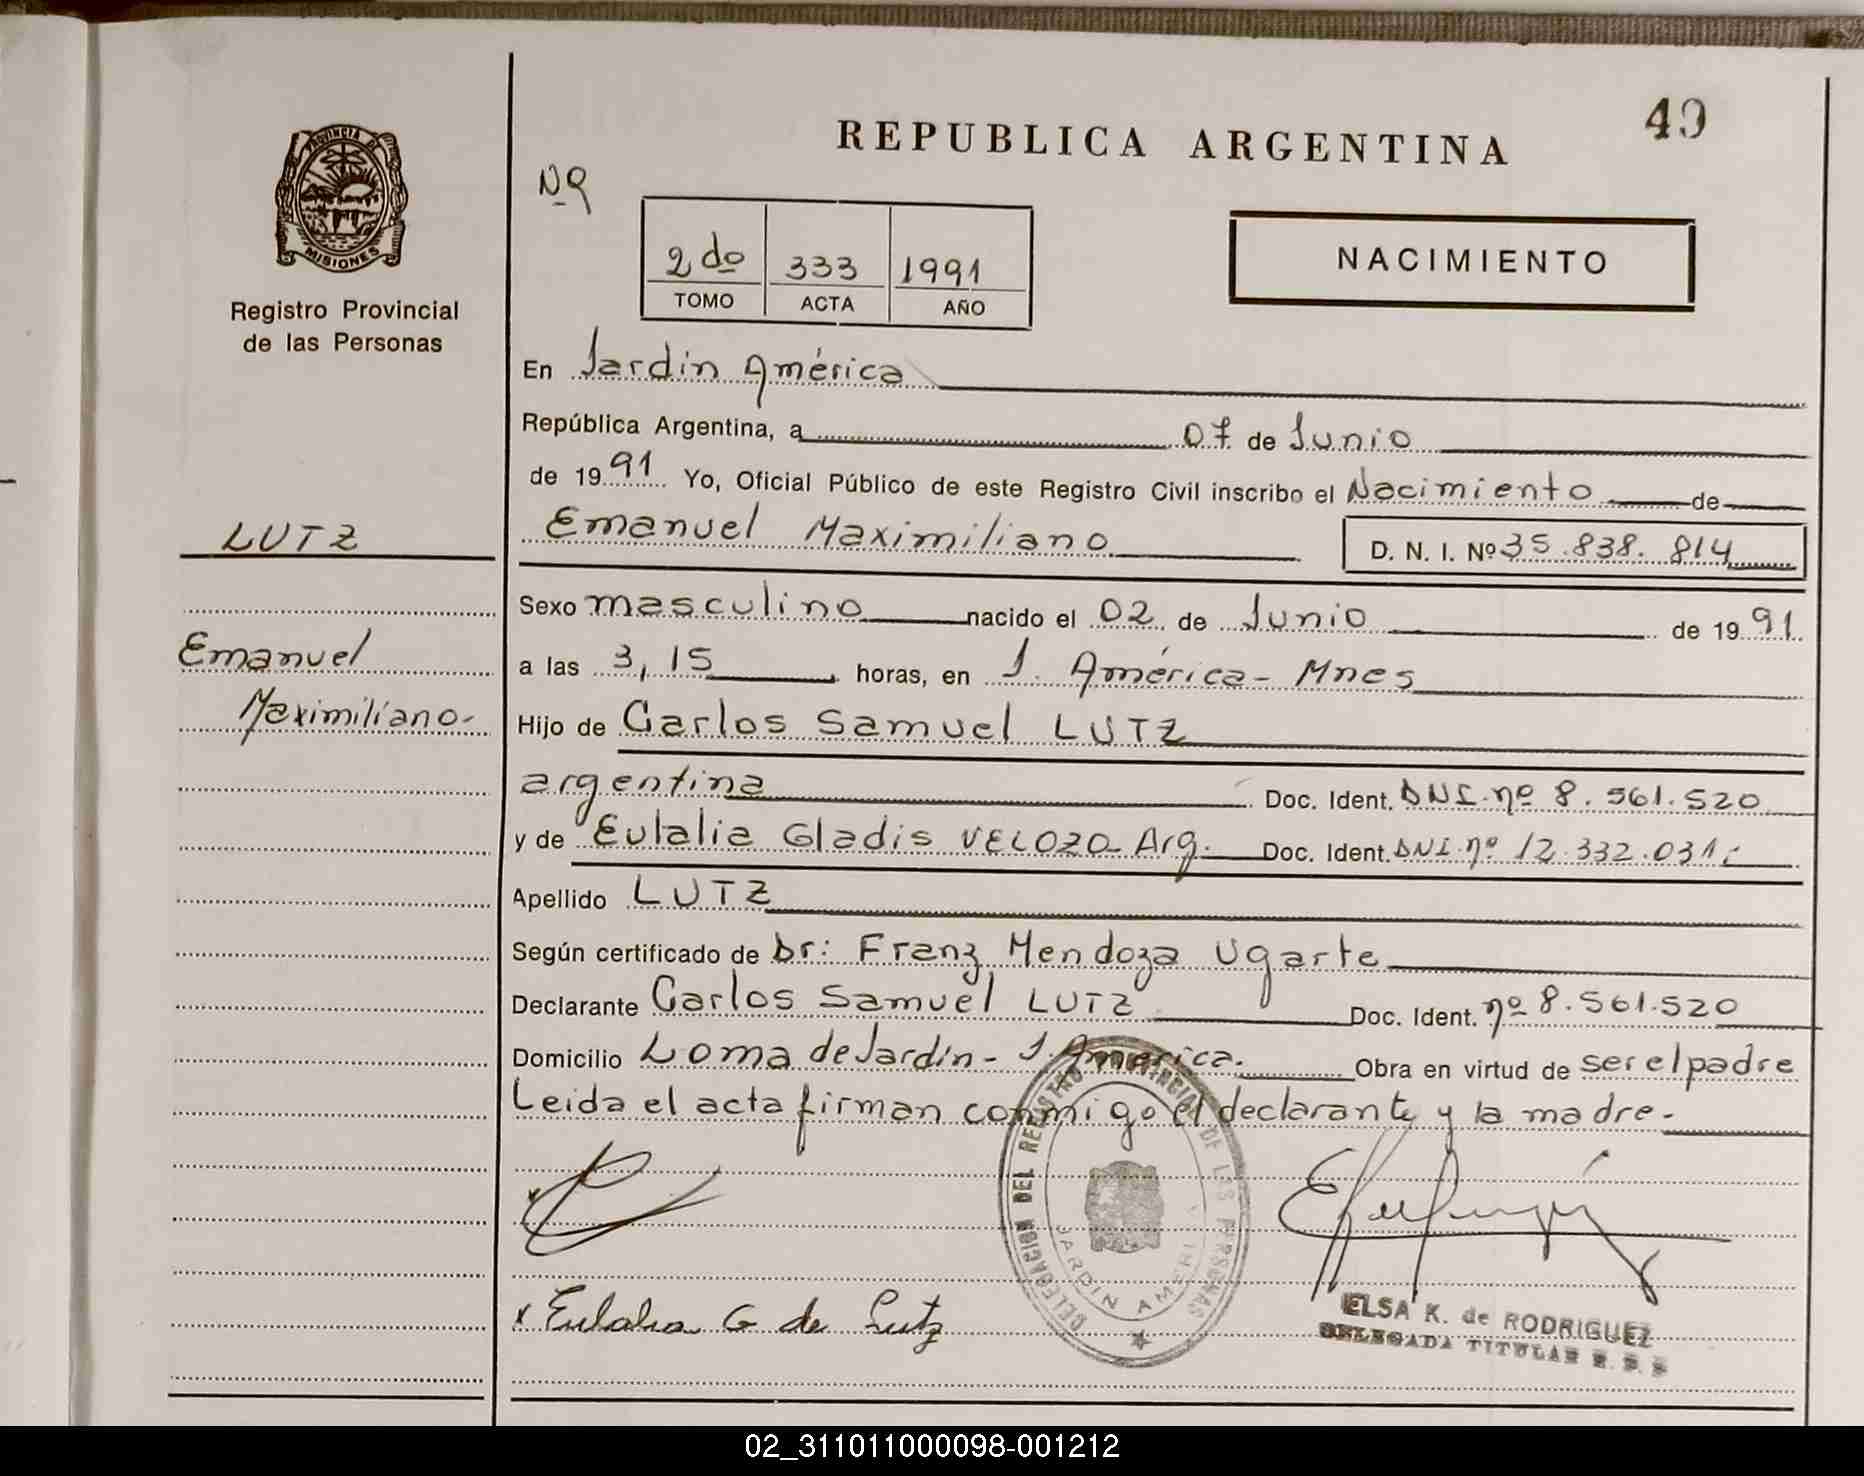 49
REPUBLICA ARGENTINA
PROVINCIA DE
MISIONES
Registro Provincial
de las Personas
Nº
2do 333 1991
TOMO ACTA AÑO
NACIMIENTO
En Jardín América
República Argentina, a 07 de Junio
de 1991 Yo, Oficial Público de este Registro Civil inscribo el Nacimiento de
LUTZ
Emanuel Maximiliano D. N. I. Nº 35.838.814
Sexo masculino nacido el 02 de Junio de 1991
Emanuel
Maximiliano-
a las 3,15 horas, en J. América - Mnes
Hijo de Carlos Samuel LUTZ
argentina Doc. Ident. DNI. nº 8.561.520
y de Eulalia Gladis VELOZO Arg. Doc. Ident. DNI. nº 12.332.031
Apellido LUTZ
Según certificado de Dr: Franz Mendoza Ugarte
Declarante Carlos Samuel LUTZ Doc. Ident. nº 8.561.520
Domicilio Loma de Jardín - J. América. Obra en virtud de ser el padre
Leida el acta firman conmigo el declarante y la madre.-
DELEGACION DEL REGISTRO PROVINCIAL DE LAS PERSONAS
JARDIN AMERI
x Eulalia G de Lutz
ELSA K. de RODRIGUEZ
DELEGADA TITULAR
02_311011000098-001212